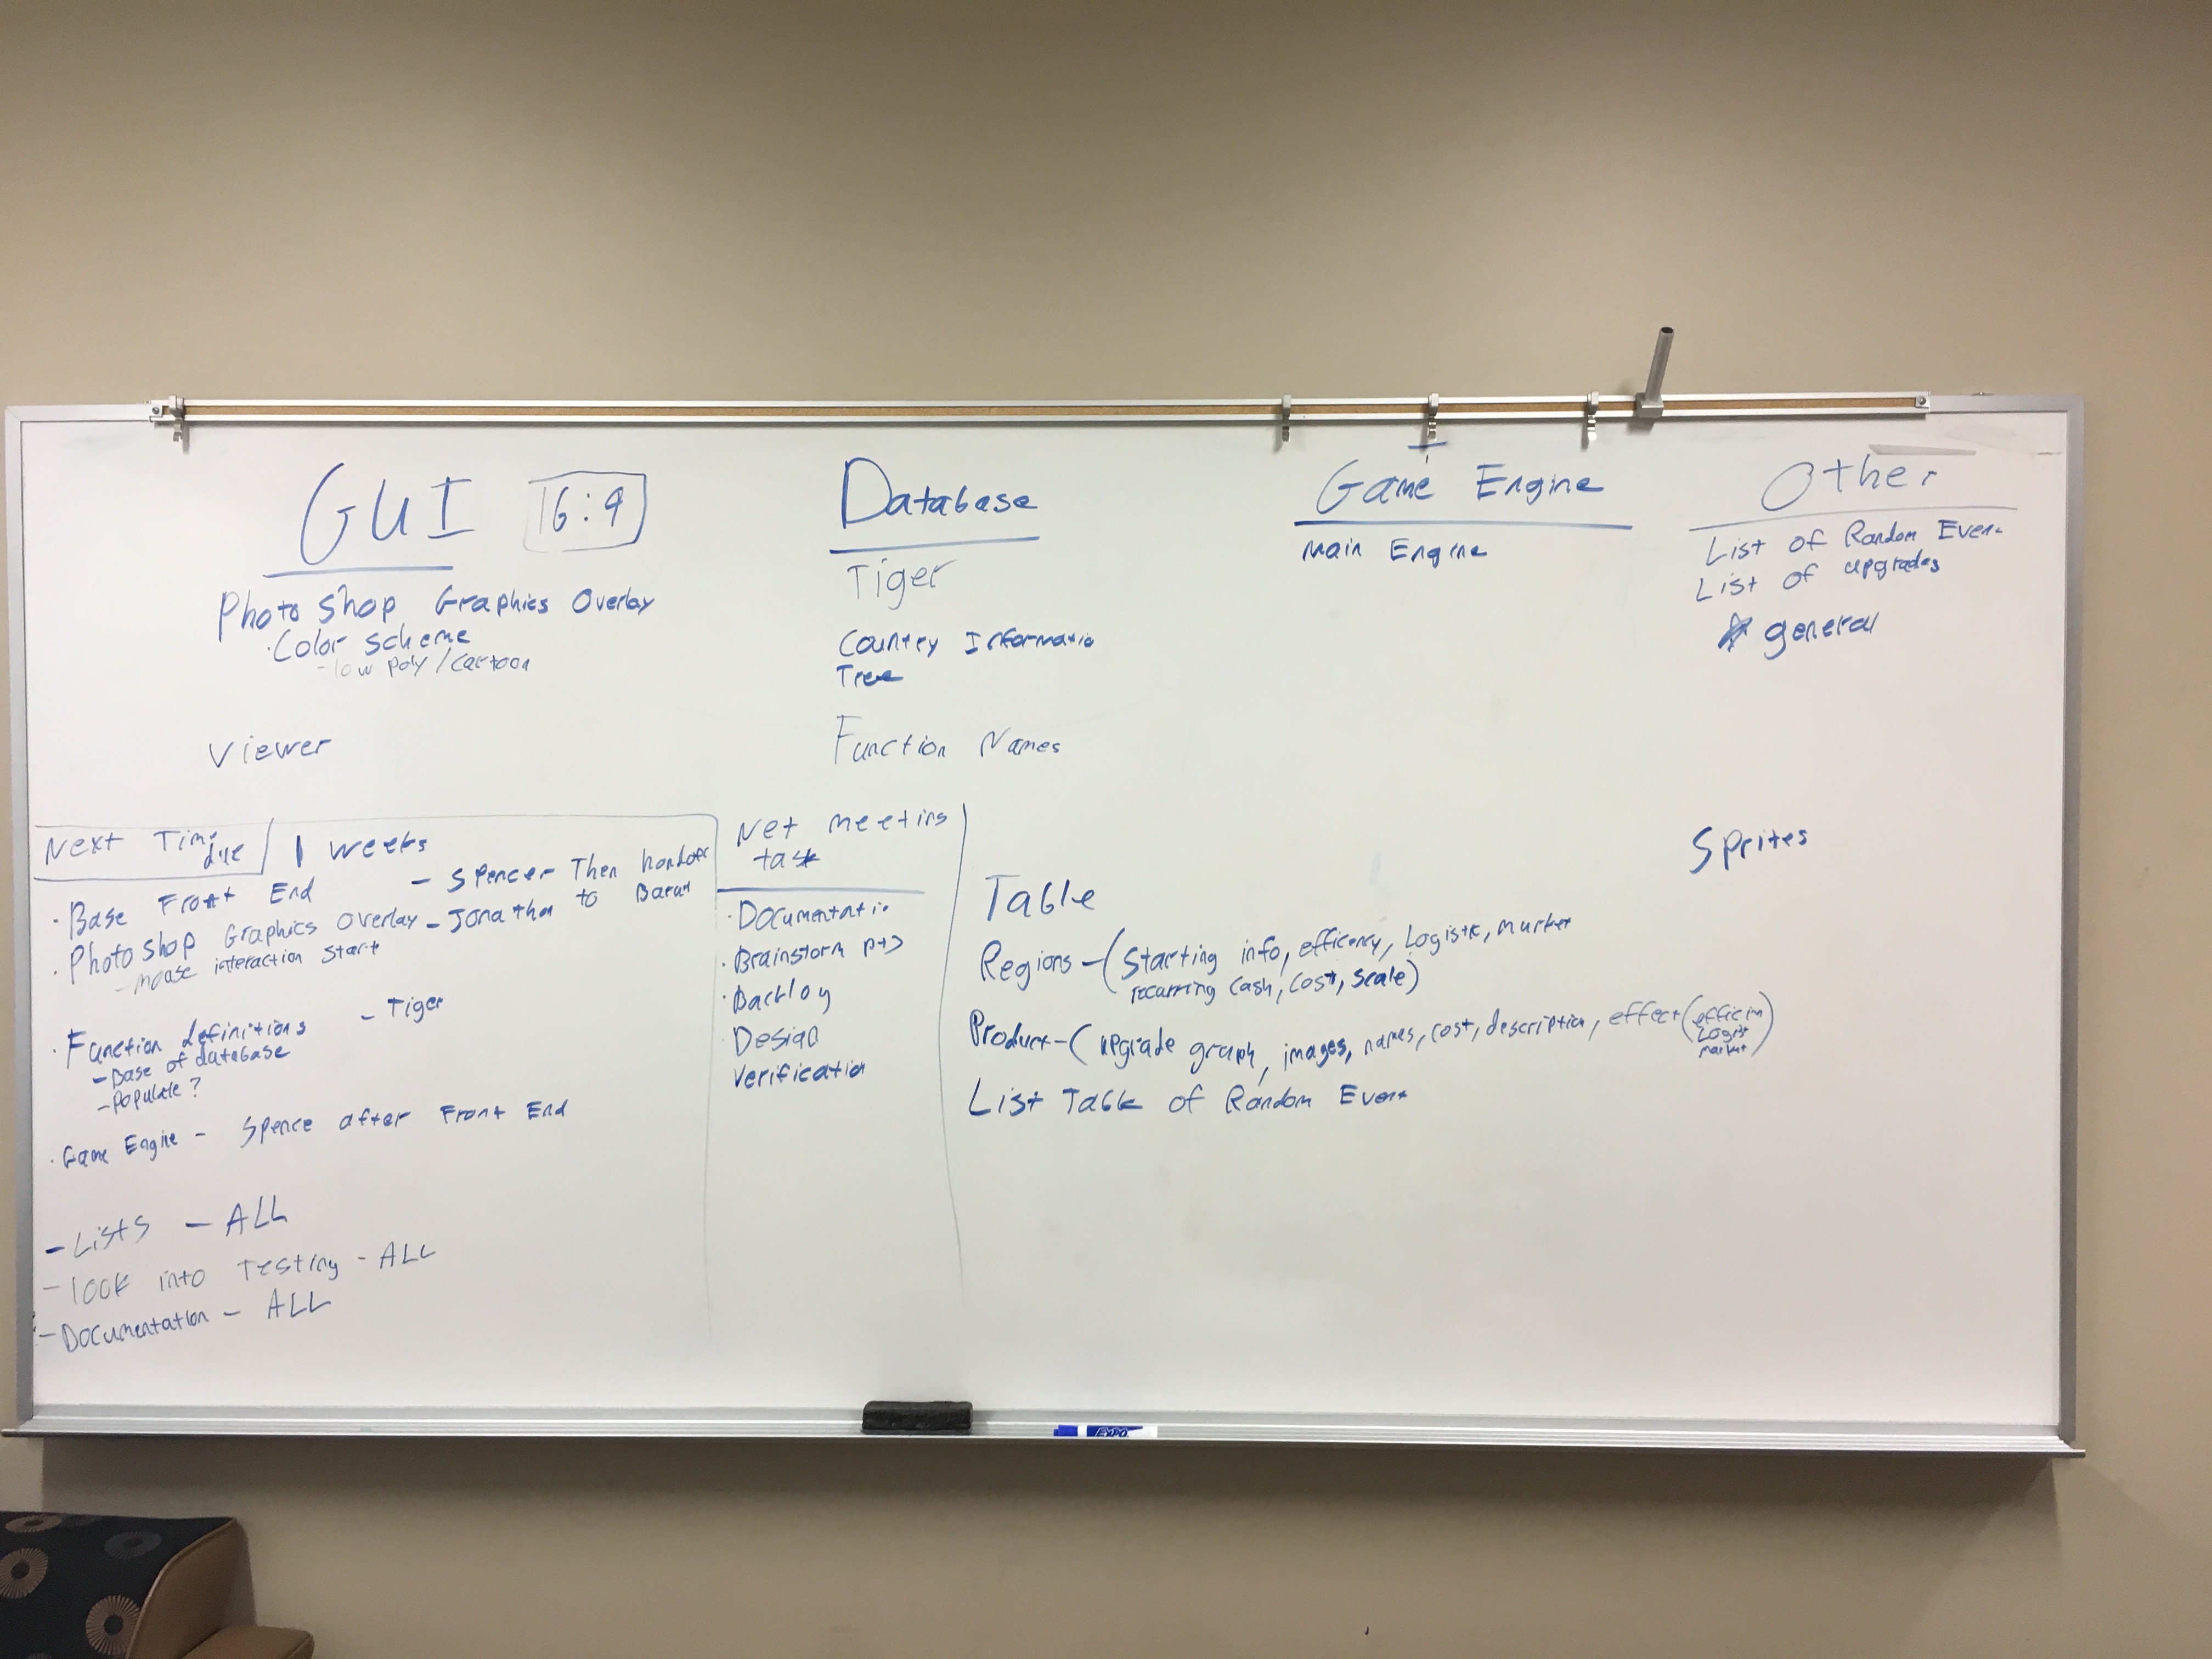 GUI 16:9
Photo Shop Graphics Overlay
· Color scheme
- low poly / cartoon
Viewer
Database
Tiger
Country Informatio
Tree
Function Names
Game Engine
Main Engine
Other
List of Random Even
List of upgrades
general
Sprites
Next Time due 1 weeks
· Base Front End - Spencer Then handoff
to
· Photo shop Graphics overlay - Jonathan
- mouse interaction start
· Function definitions - Tiger
- Base of database
- Populate?
· Game Engine - Spence after Front End
- Lists - ALL
- look into Testing - ALL
- Documentation - ALL
Net meeting
task
· Documentatio
· Brainstorm pts
· Backlog
· Design
Verification
Table
Regions - (Starting info, efficency, Logistic, market
recurring cash, cost, scale)
Product - (upgrade graph, images, names, cost, description, effect (efficin
Logist
market)
List Table of Random Event
EXPO